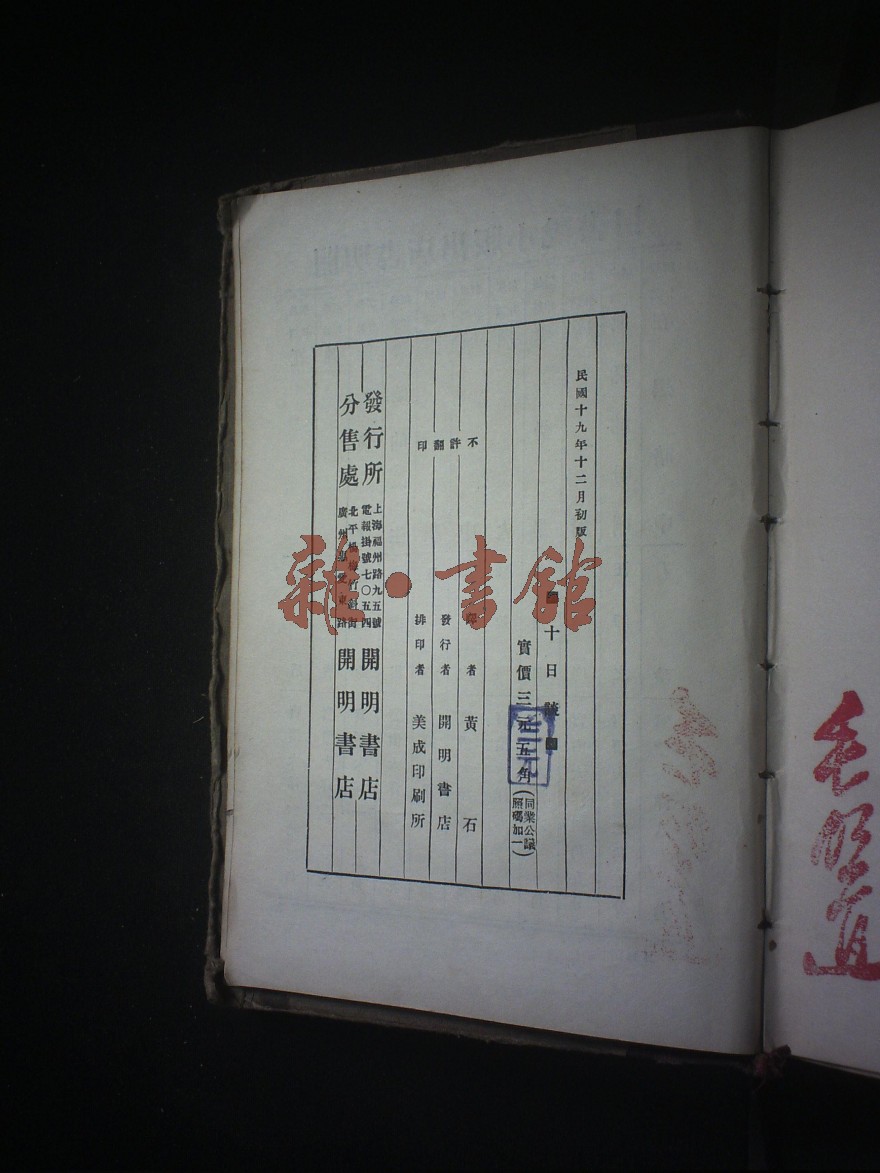 民國十九年十二月初版
十日談
實價三元五角
(同業公議
照碼加一)
不許翻印
者 黃石
發行者 開明書店
排印者 美成印刷所
發行所
上海福州路九五號
電報掛號七〇五四
開明書店
分售處
北平楊梅竹斜街
廣州惠愛東路
開明書店
雜·書館